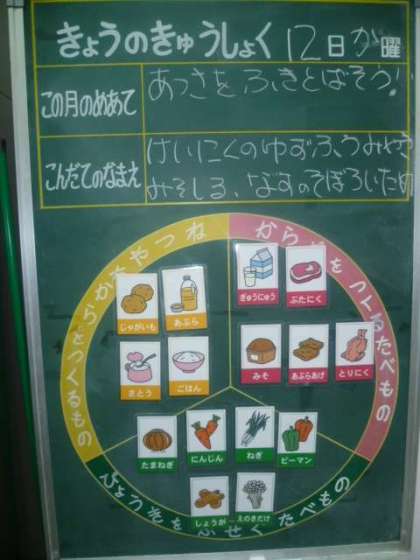 きょうのきゅうしょく 12日か曜
この月のめあて
あつさをふきとばそう!
こんだてのなまえ
けいにくのゆずふうみやき
みそしる、なすのそぼろいため
ちからやねつをつくるもの
からだをつくるたべもの
じゃがいも
あぶら
ぎゅうにゅう
ぶたにく
さとう
ごはん
みそ
あぶらあげ
とりにく
たまねぎ
にんじん
ねぎ
ピーマン
しょうが
えのきだけ
びょうきをふせぐたべもの